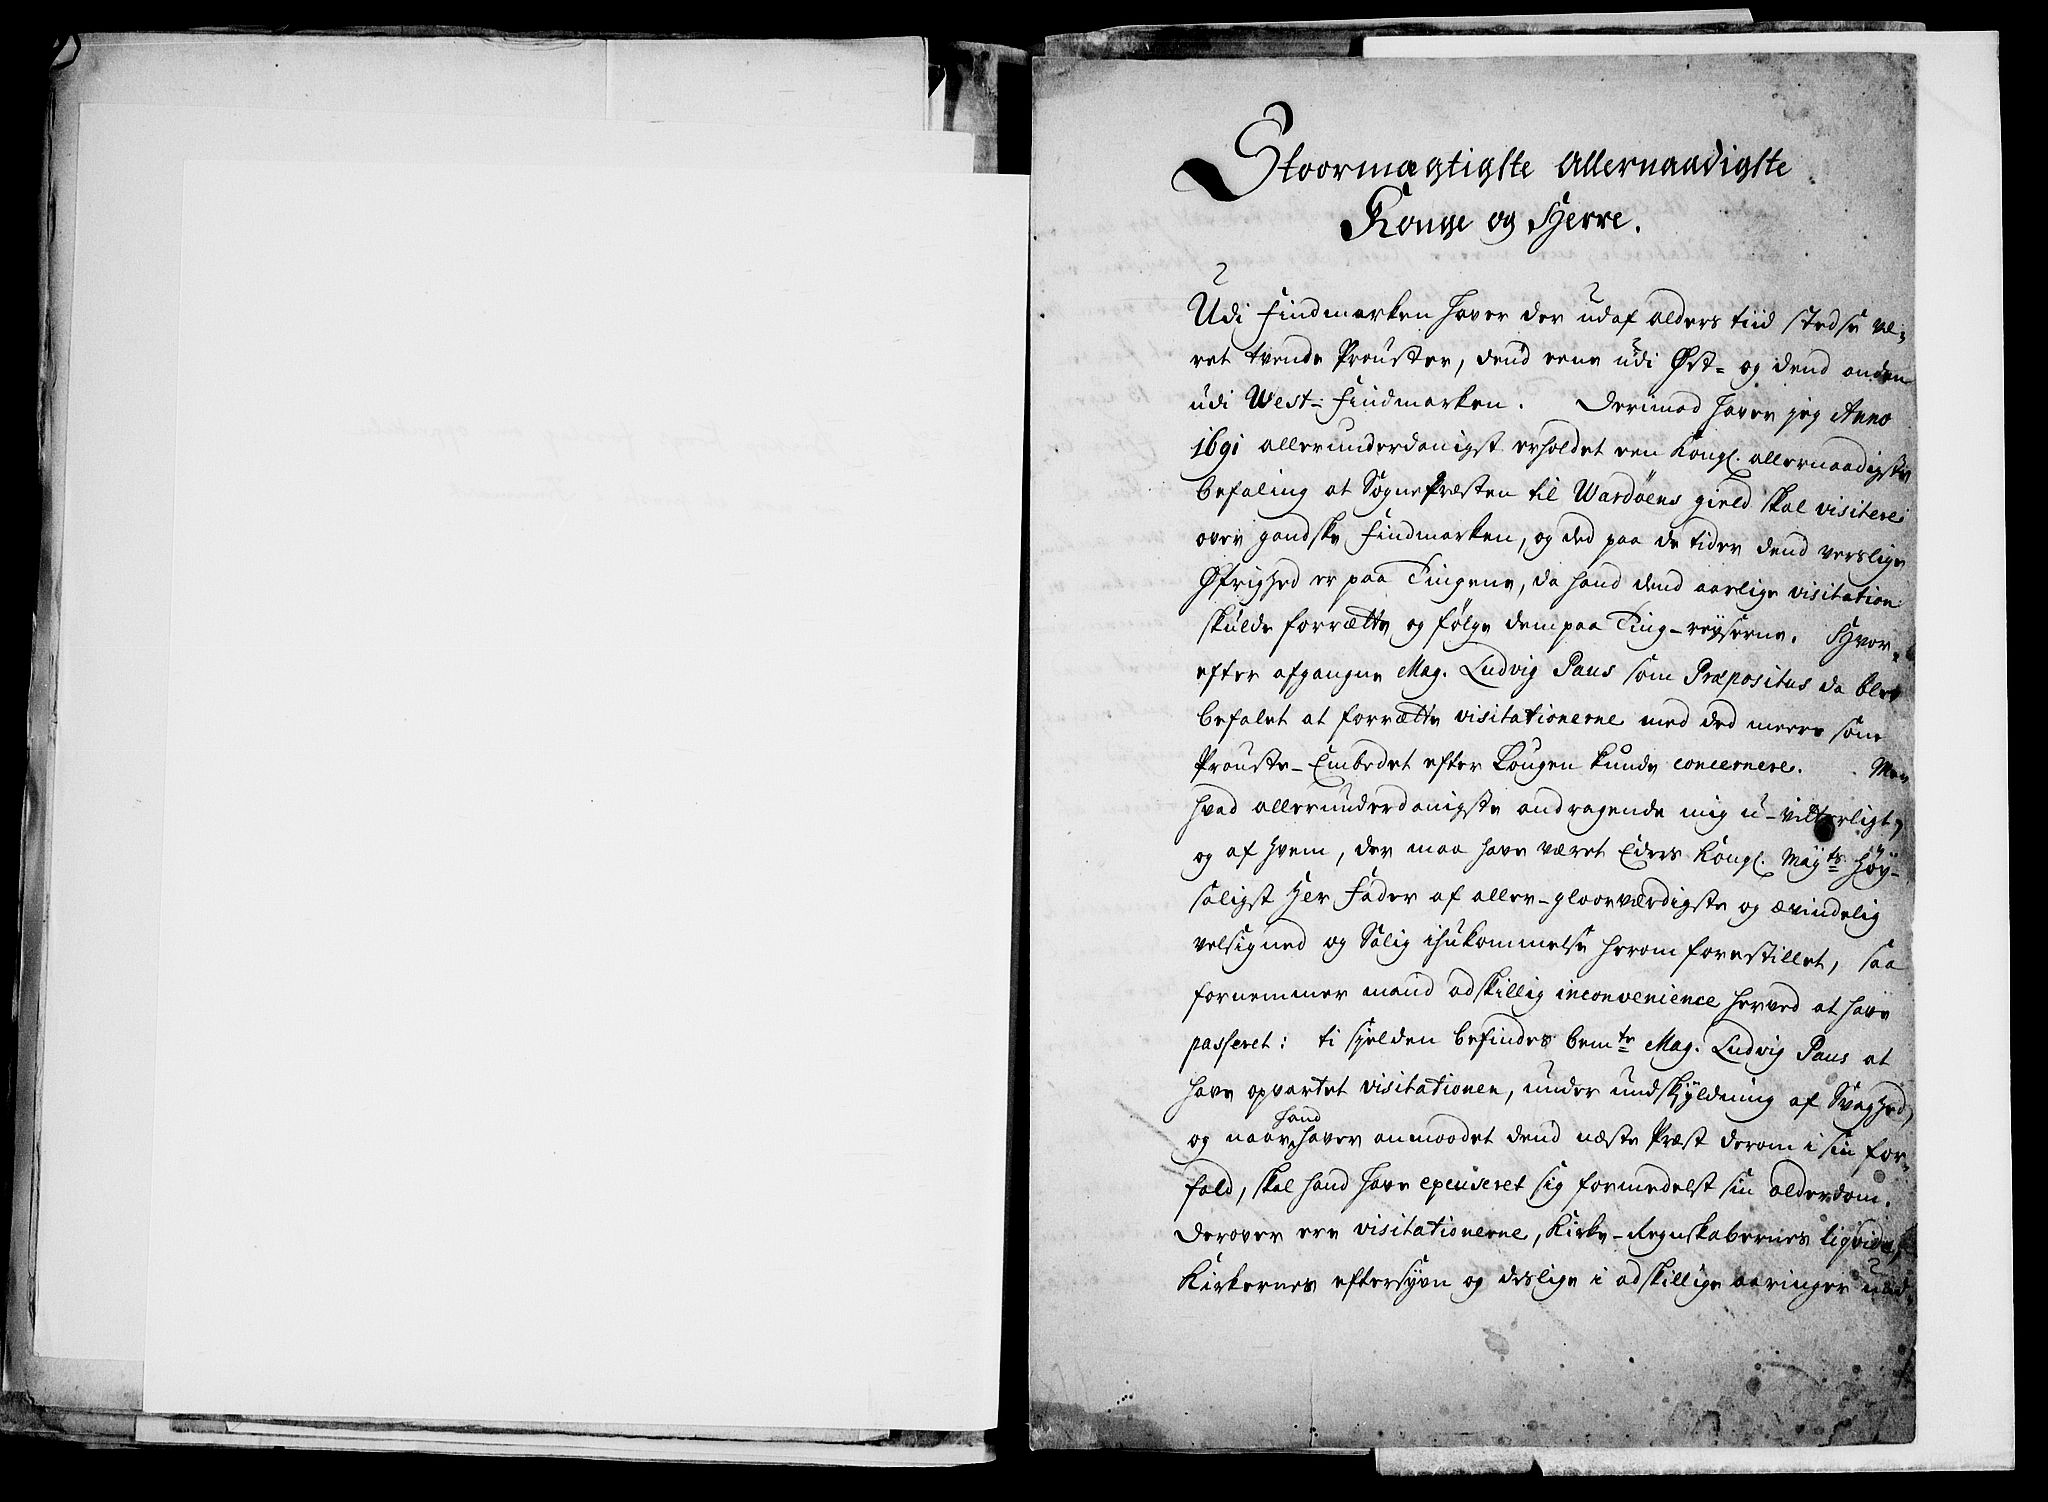 Stoormægtigste Allernaadigste
Konge og Herre.
Udi Findmarken haver der udaf alders tiid stedse væ-
ret tvende Prouster, dend eene udi Øst- og dend anden
udi West-Findmarken. Derimod haver jeg Anno
1691 allerunderdanigst erholdet een Kongl. allernaadigste
befaling at SognePræsten til Wardøens gield skal visitere
over gandske Findmarken, og ded paa de tider dend verslige
Øfrighed er paa Tingene, da hand dend aarlige visitation
skulde forrætte og følge dem paa Ting-reyserne. Hvor-
efter afgangne Mag. Ludvig Paus som Præpositus da blev
befalet at forrætte visitationerne med ded meere som
Prouste-Embedet efter Lougen kunde concernere. Men
hvad allerunderdanigste andragende mig u-vitterligt,
og af hvem, der maa have været Eders Kongl. Mayts Høy-
saligst Her Fader af aller-gloorværdigste og ævindelig
velsigned og Salig ihukommelse herom forestillet, saa
fornemmer mand adskillig inconvenience herved at have
passeret: ti sielden befindes bemte Mag. Ludvig Paus at
have opvartet visitationen, under undskyldning af Svaghed,
og naar hand haver anmodet dend næste Præst derom i sin for-
fald, skal hand have excuseret sig formedelst sin alderdom.
Derover ere visitationerne, Kirke-Regnskabernes liqvida-
Kirkernes eftersyn og deslige i adskillige aaringer